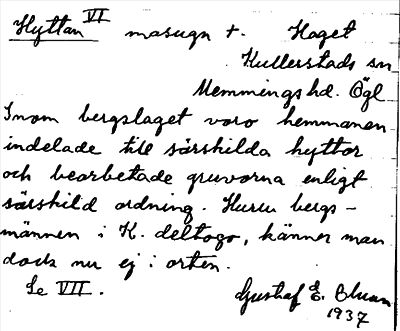 Hyttan VI masugn +. Haget
Kullerstads sn
Memmings hd. Ögl
Inom bergslaget voro hemmanen
indelade till särskilda hyttor
och bearbetade gruvorna enligt
särskild ordning. Huru bergs-
männen i K. deltogo, känner man
dock nu ej i orten.
Se VII. Gustaf E. Bluun
1937